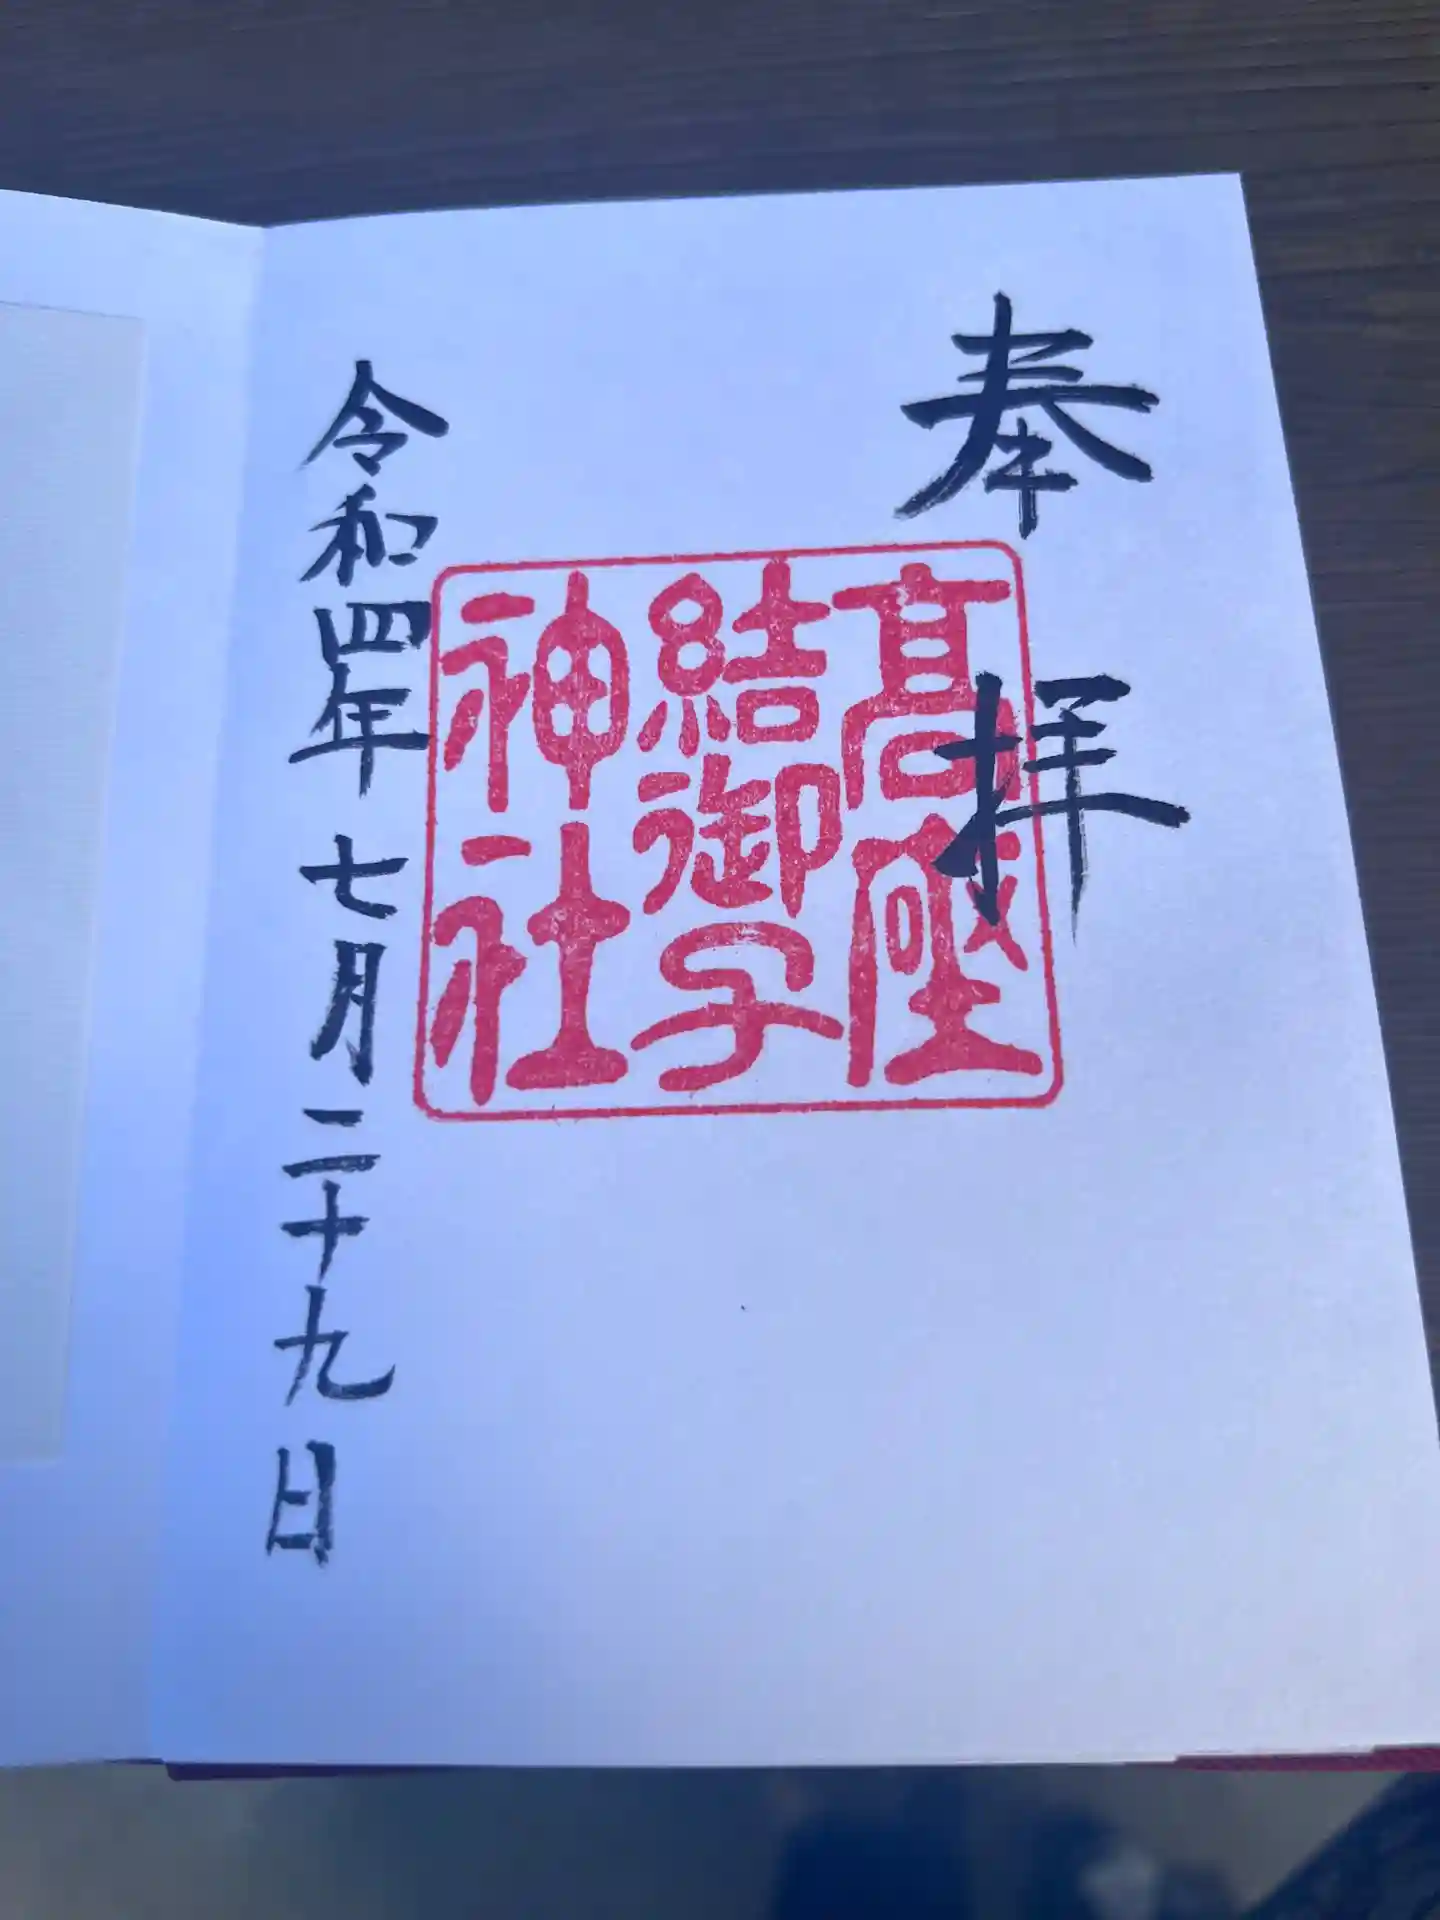 奉拝
髙座
結御子
神社
令和四年七月二十九日